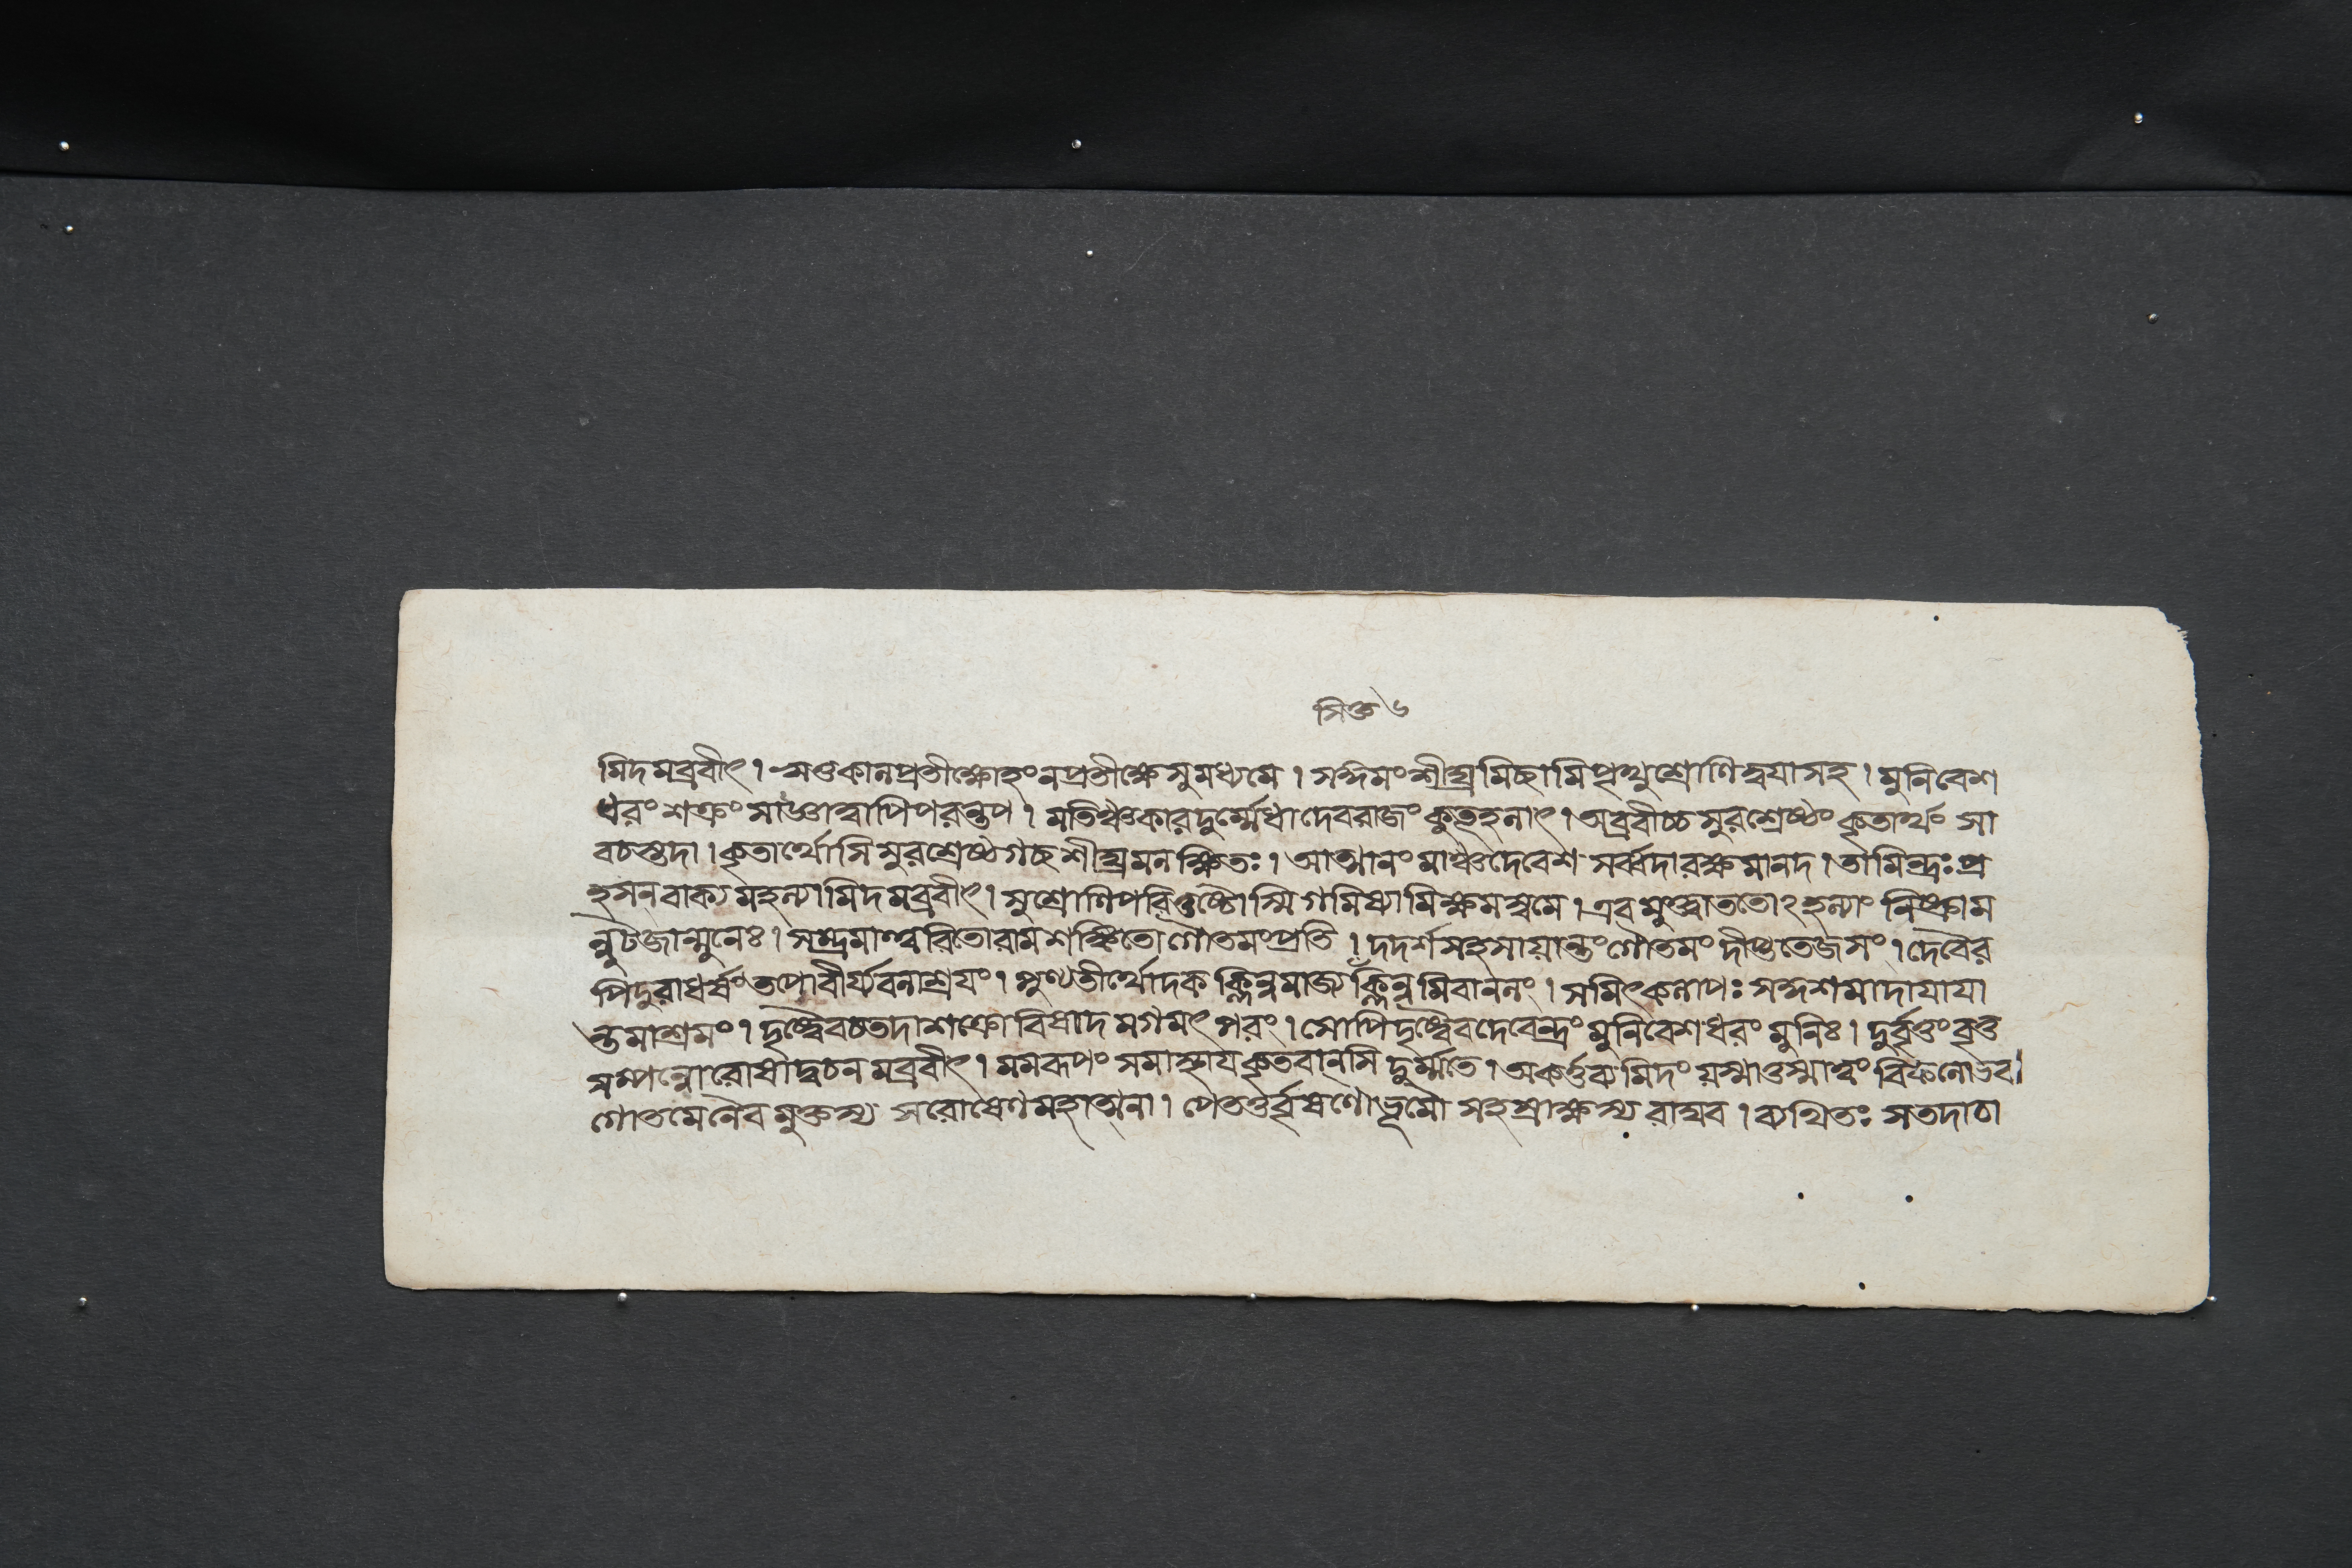 সিগু ৬
মিদমব্রবীৎ। ঋতুকালপ্রতীক্ষোহংনপ্রতীক্ষেসুমধ্যমে। সঙ্গমংশীঘ্রমিচ্ছামিপৃথুশ্রোণিত্বযাসহ। মুনিবেশ
ধরং শক্রং সাজ্ঞাত্বাপিপরন্তপ। মতিঞ্চকারদুর্ম্মেধা দেবরাজং কুতূহলাৎ। অব্রবীচ্চসুরশ্রেষ্ঠং কৃতার্থং সা
বচস্তদা। কৃতার্থোসি সুরশ্রেষ্ঠগচ্ছ শীঘ্রমলক্ষিতঃ। আত্মানং মাঞ্চদেবেশ সর্ব্বদারক্ষমানদ। তামিন্দ্রঃ প্র
হসন্ বাক্যমহল্যামিদমব্রবীৎ। সুশ্রোণিপরিতুষ্টোস্মি গমিষ্যামিক্ষমস্বমে। এবমুক্ত্বাততোঽহল্যাং নিষ্ক্রাম
ন্নুটজান্মুনেঃ। সম্ভ্রমাত্ত্বরিতোরামশঙ্কিতোগৌতমংপ্রতি। দদর্শসহসায়ান্তংগৌতমং দীপ্ততেজসং। দেবৈর
পিদুরাধর্ষংতপোবীর্য্যবলাশ্রযং। পুণ্যতীর্থোদকক্লিন্নমাজ্যক্লিন্নমিবানলং। সমিৎকলাপঃ সঙ্গশমাদাযাযা
ন্তমাশ্রমং। দৃষ্ট্বৈবচতদাশক্রোবিষাদমগমৎ পরং। সোপিদৃষ্ট্বৈবদেবেন্দ্রং মুনিবেশধরং মুনিঃ। দুর্বৃত্তং বৃত্ত
সম্পন্নোরোষাদ্বচনমব্রবীৎ। মমরূপং সমাস্থাযকৃতবানসি দুর্ম্মতে। অকর্ত্তব্যমিদং যস্মাত্তস্মাত্ত্বং বিফলোভব।
গৌতমেনৈবমুক্তস্য সরোষেণমহাত্মনা। পেততুর্বৃষণৌভূমৌ সহস্রাক্ষস্য রাঘব। ব্যথিতঃ সতদাচা